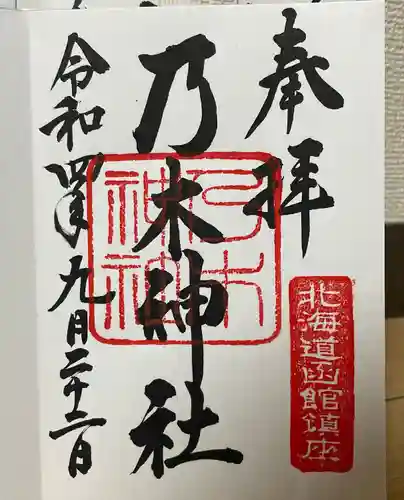 奉拝
乃木神社
令和四年九月二十二日
乃木神社
北海道函館鎮座